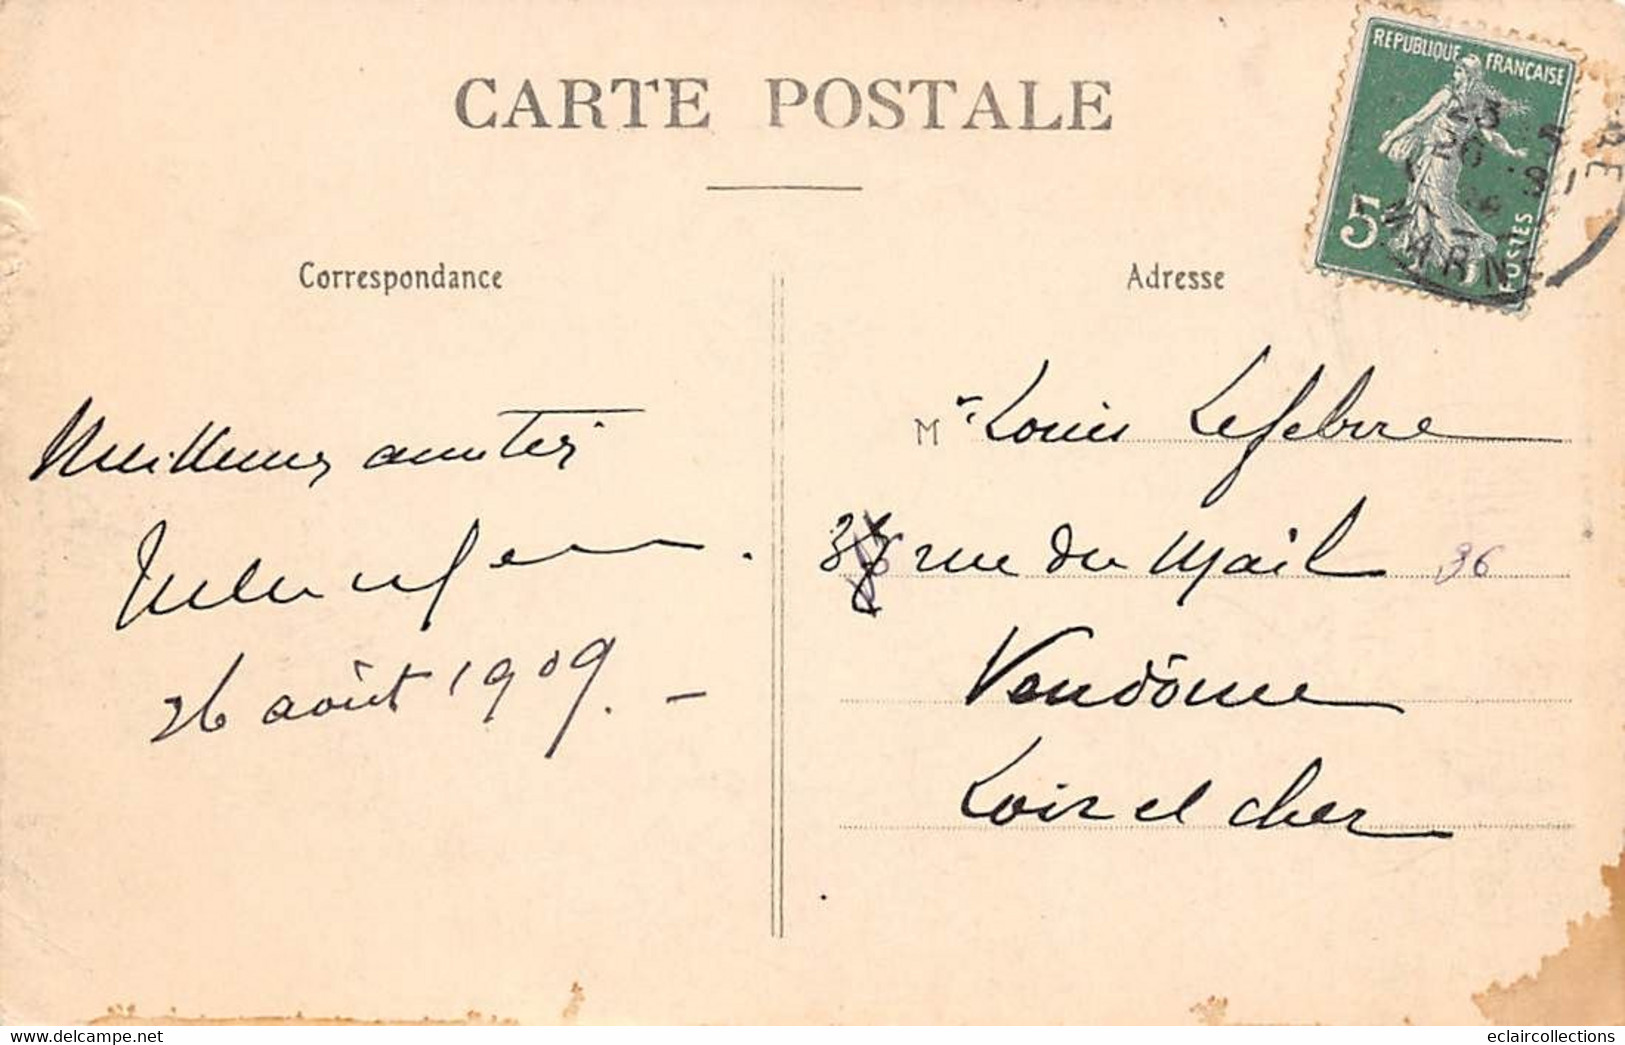 CARTE POSTALE
REPUBLIQUE FRANÇAISE
5c
POSTES
MARNE
Correspondance
Adresse
Meilleures amitiés
26 août 1909. –
Mr. Louis Lefebvre
rue du Mail 36
Vendôme
Loir et cher
www.delcampe.net
eclaircollections